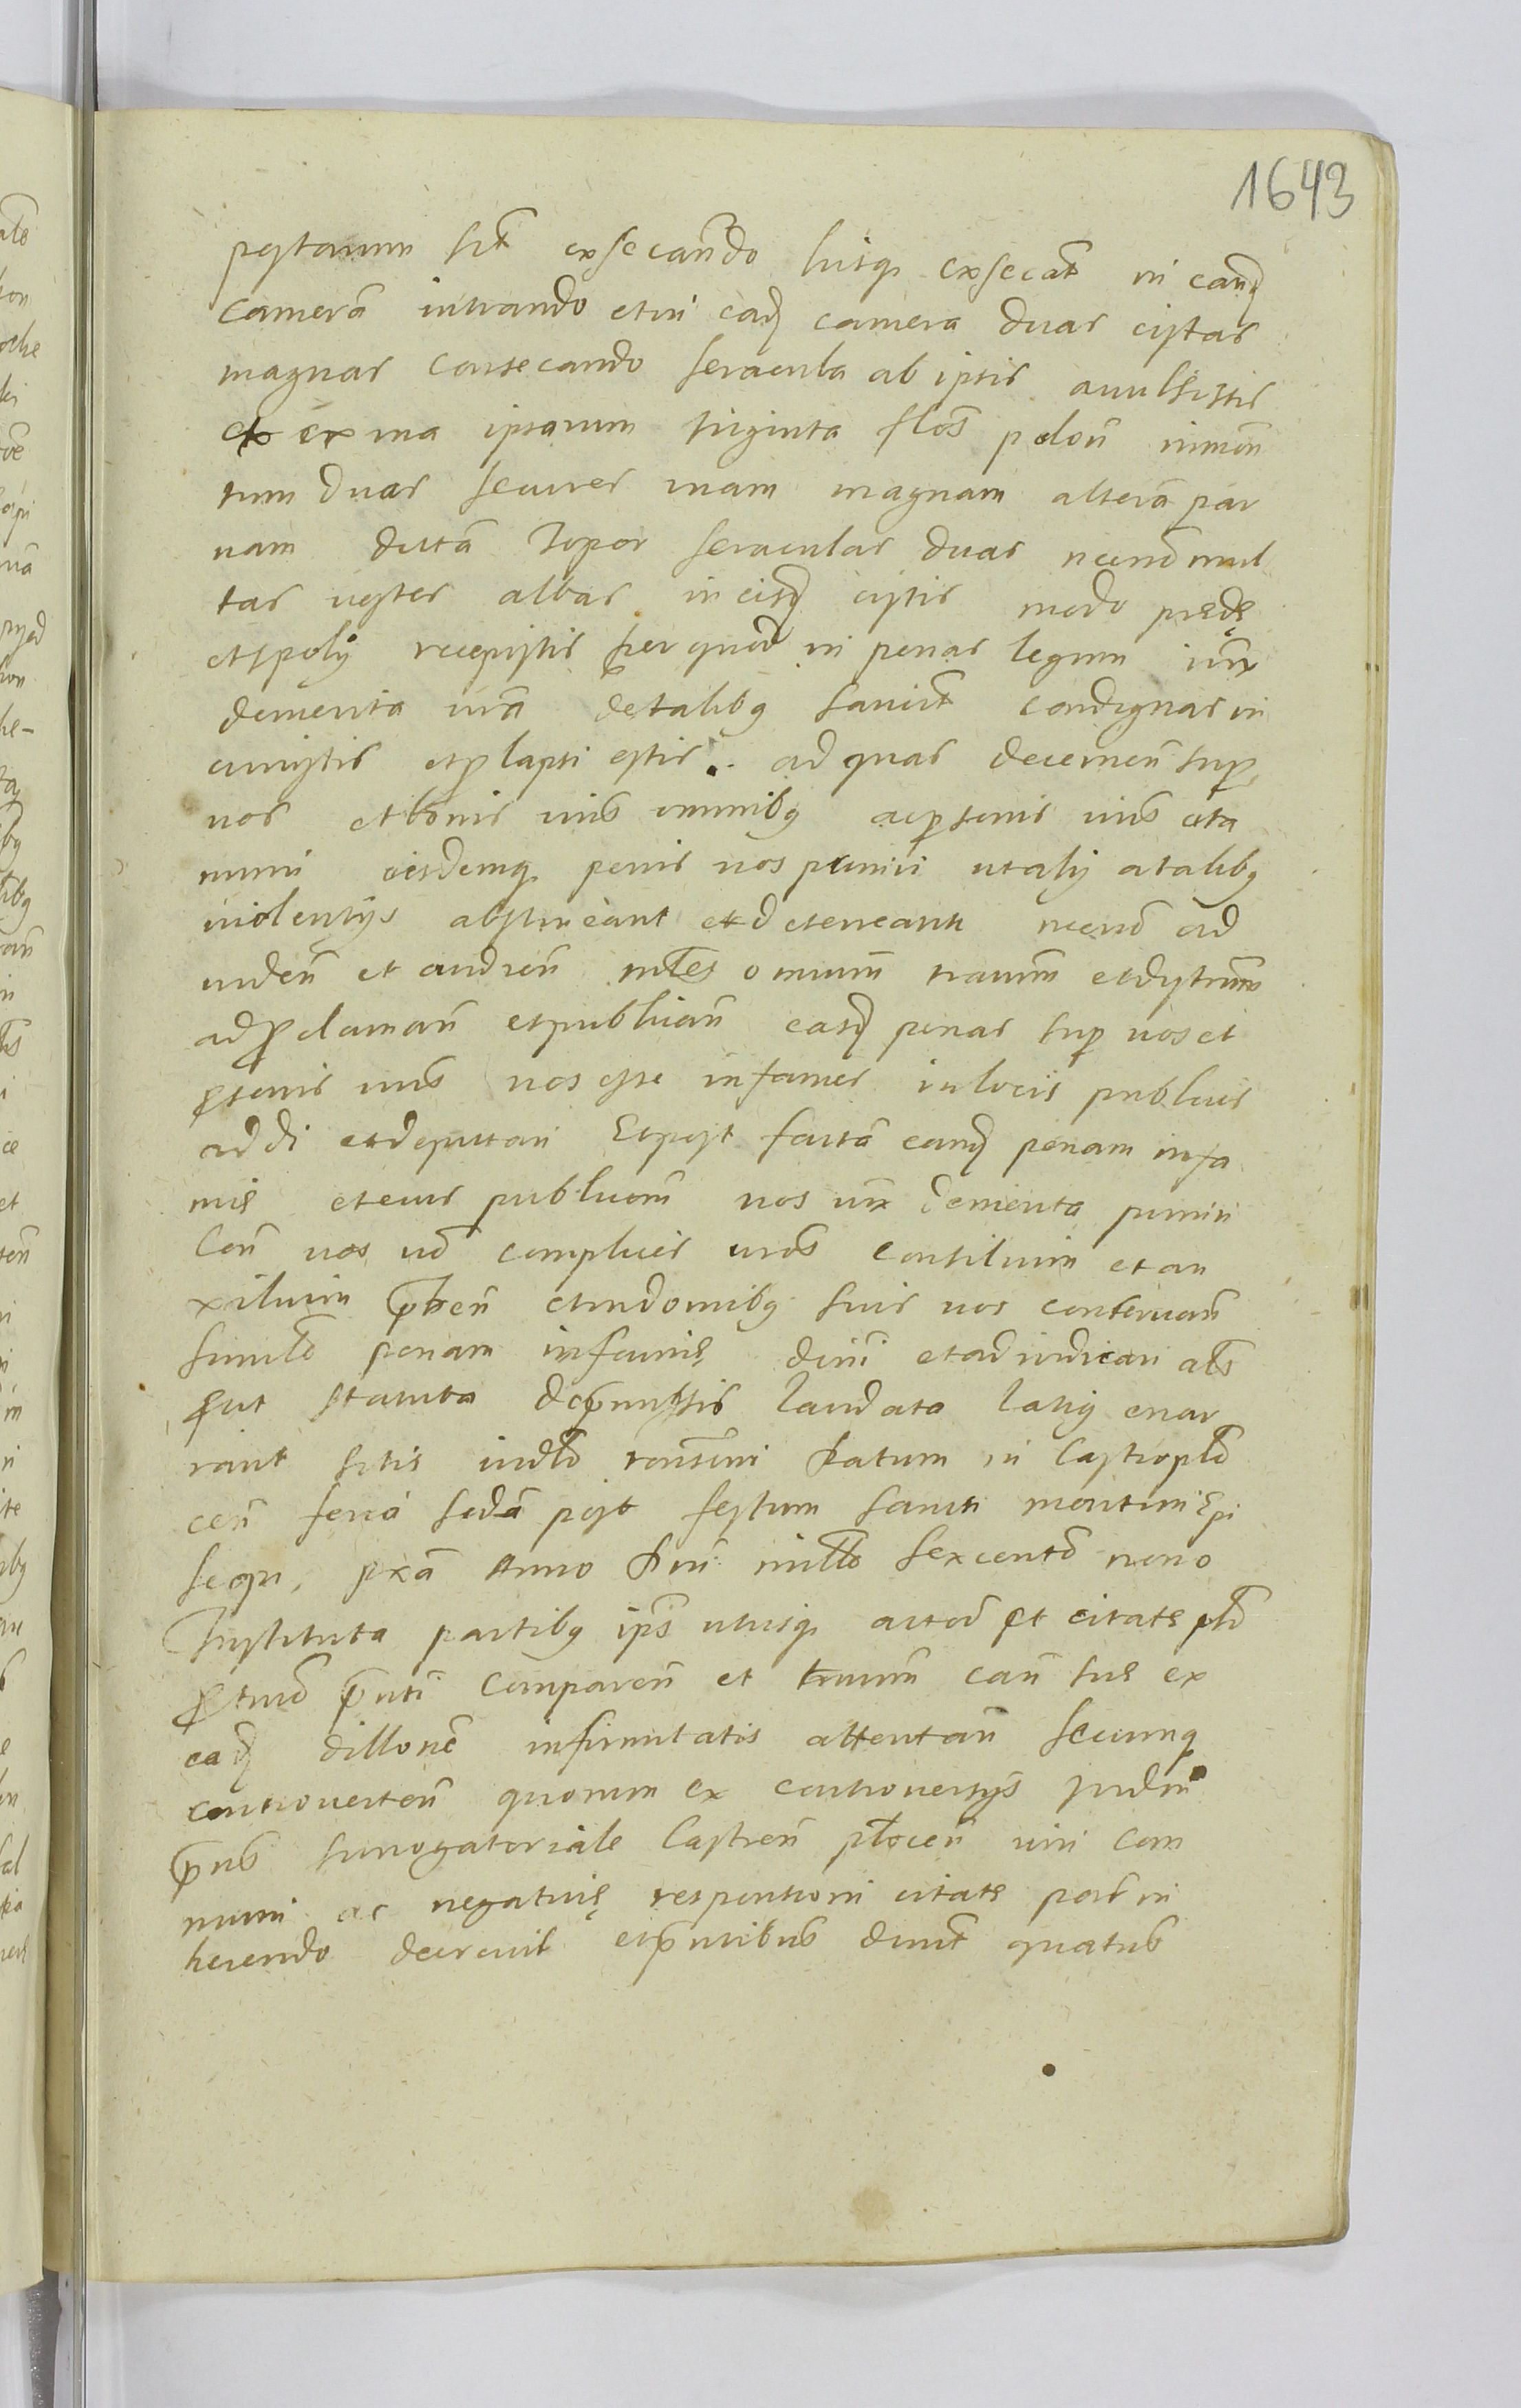 1643
pestarum sit exsecando hisq exsecat in eand
Camerā intrando et in ead camera duas cistas
magnas consecando seracula ab ipsis avulsistis
et ex una ipsarum triginta flos polon inmon
tum duas secures unam magnam alterā par
vam dictā Topor seraculas duas necnō mul
tas vestes albas in eisd cistis modo prædę
et spolij recepistis per quod in penas legum iux
demerita vrā de talibq sancit condignas in
curristis et plapsi estis. ad quas decernen sup
vos et bonis vris omnibq ac psonis vris cita
mini eisdemq penis vos puniri ut alij a talibq
violentijs abstineant et deterreantur necnō ad
viden et audien mltes omnium terrarum et distrum
ad proclaman et publican easd penas sup vos et
psonis vris vos esse infames in locis publicis
addi et deputari Et post factā eand penam infa
mię et eius publicom vos iux demerita puniri
Con vos vō complices vros consilium et au
xilium pben et in domibq suis vos conservan
similr penam infamię dicni et adiudicari als
put statuta depmissis laudata latiq enar
rant sitis iudlr responsuri Datum in Castro plo
cen feria secdā post festum sancti Martini Epi
sequ, pxā Anno Dni millo sexcento nono
Instituta partibq ipsis utrisq actor et citatę plr
ptmō pnti Comparen et terminum can suę ex
ead dillone infirmitatis attentan secumq
controverten quorum ex controversijs Judm
pns surrogatoriale Castren plocen viri com
muni ac negativę responsioni citatę part in
herendo decrevit et pntibus dunt quatus